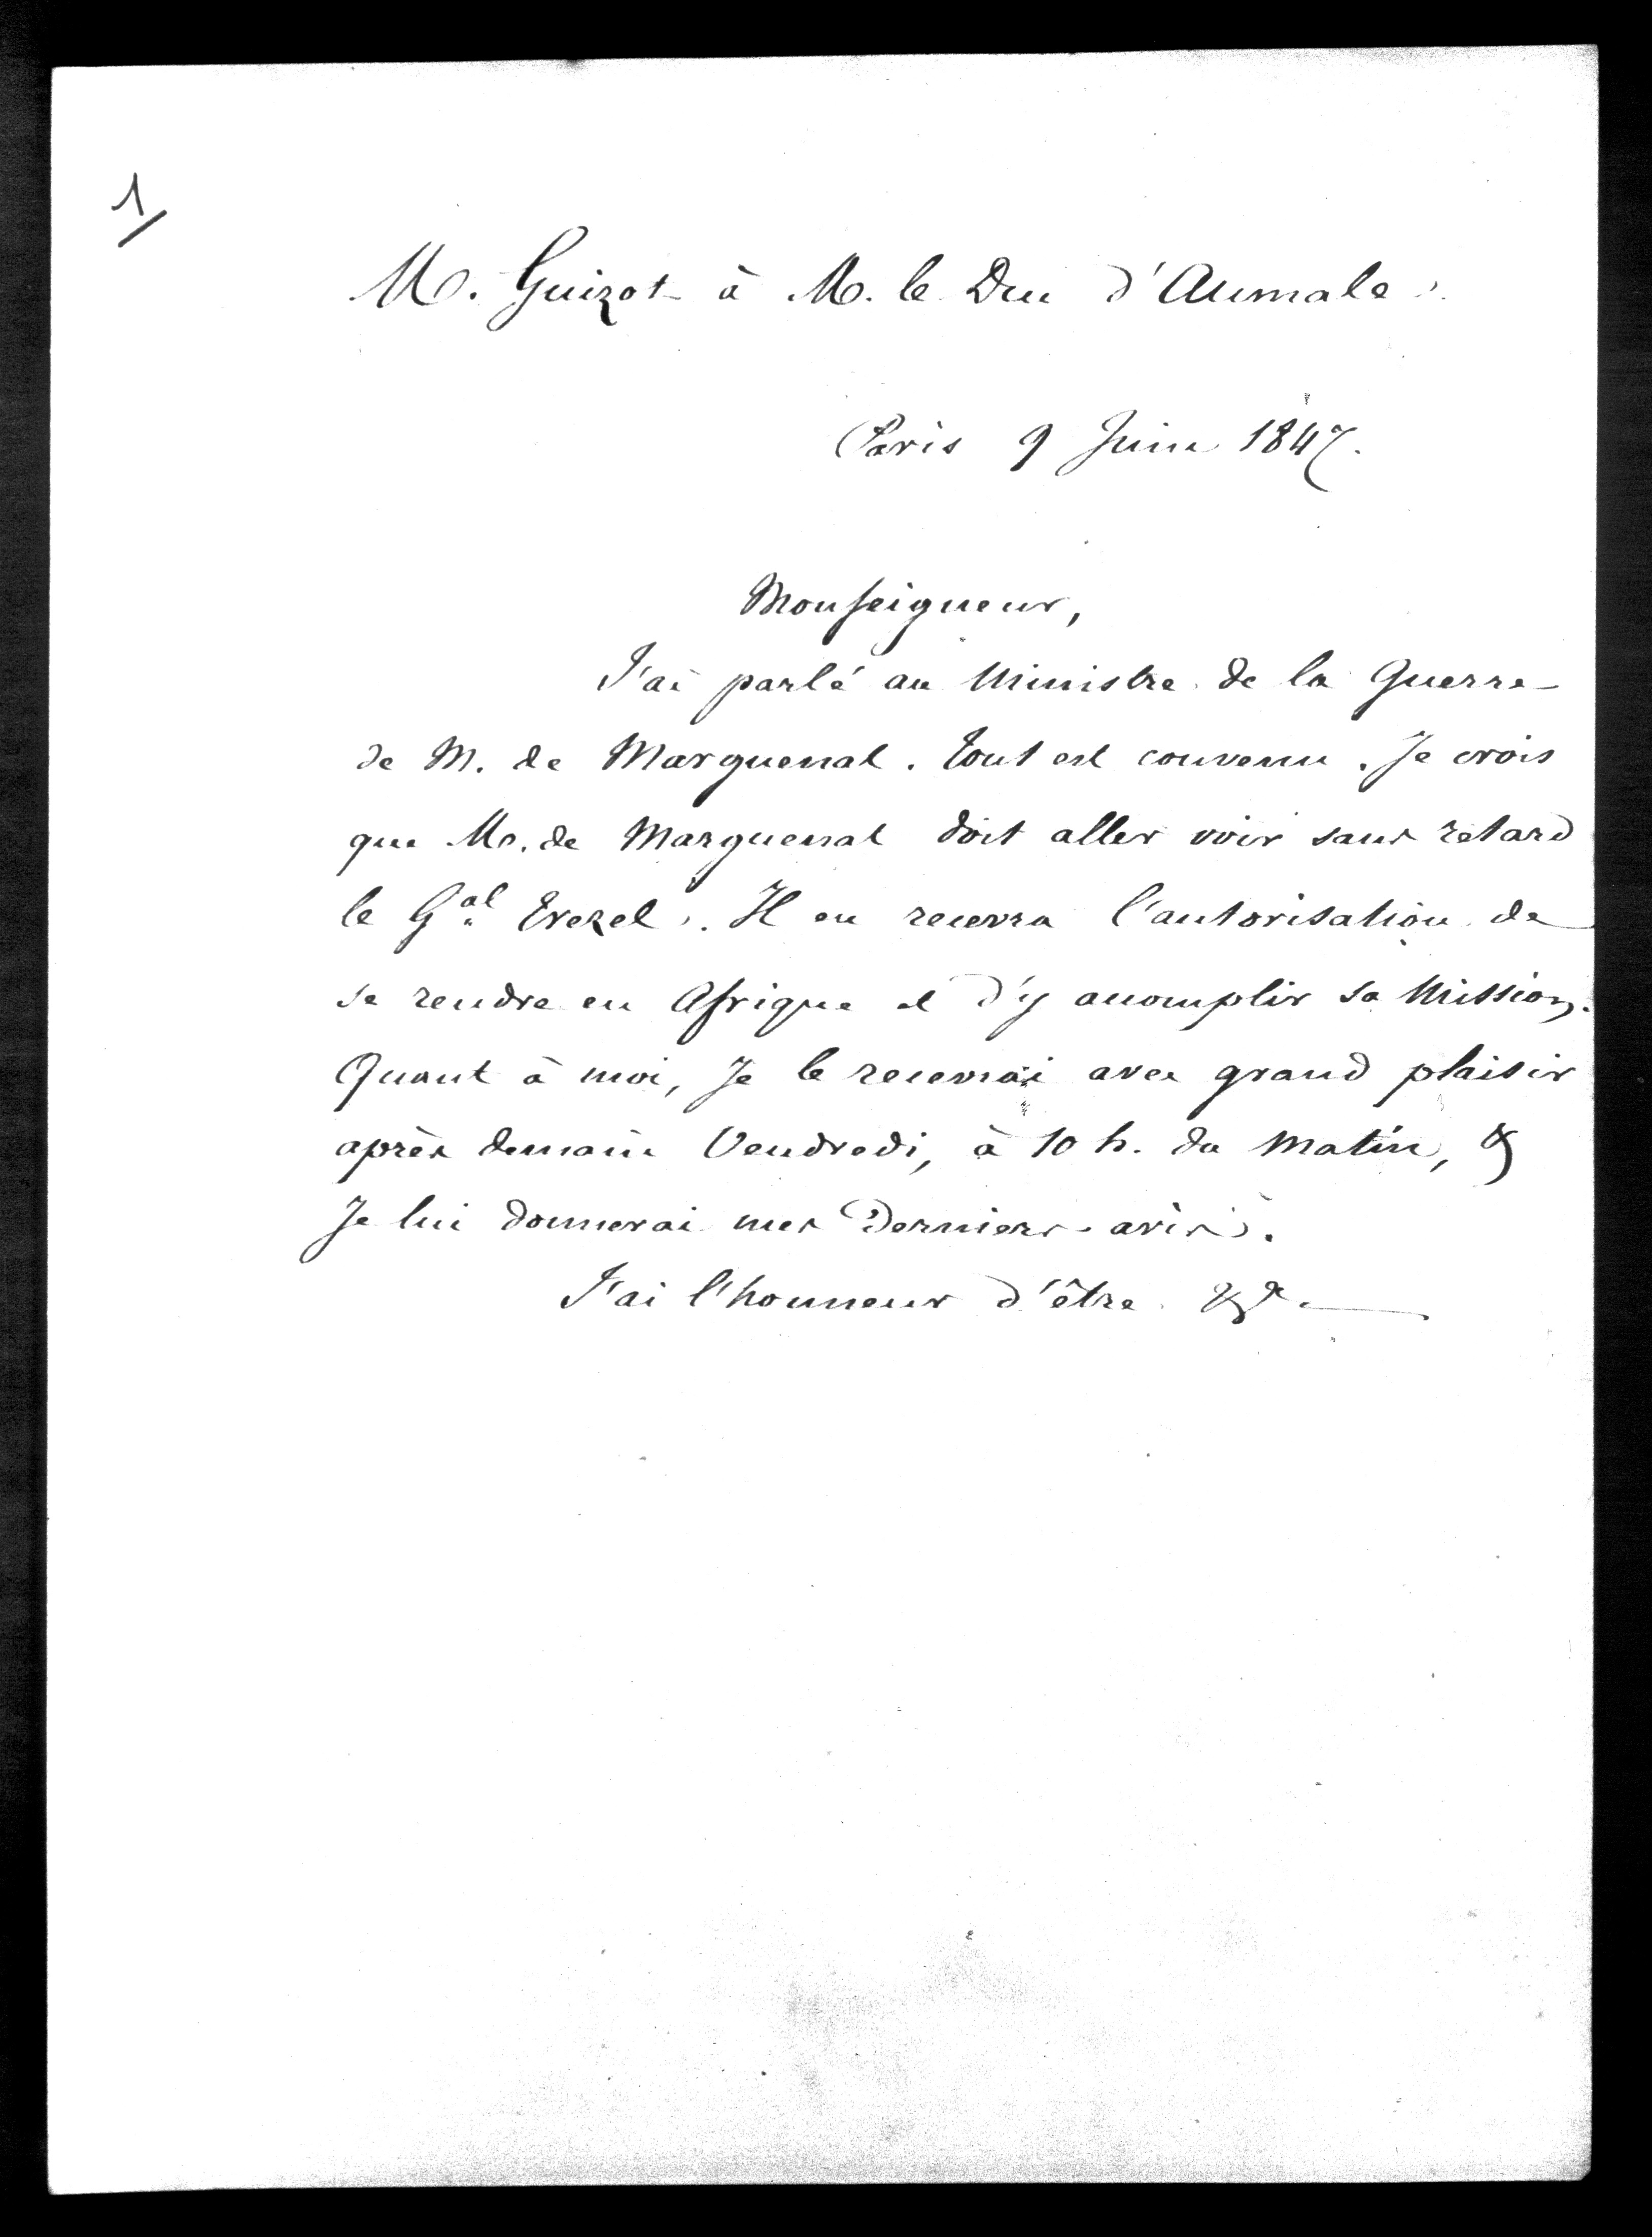 1
M. Guizot à M. le Duc d'Aumale.
Paris 9 Juin 1847.
Monseigneur,
J'ai parlé au Ministre de la Guerre
de M. de Marguenat. Tout est convenu. Je crois
que M. de Marguenat doit aller voir sans retard
le Gal Trezel. Il en recevra l'autorisation de
se rendre en Afrique et d'y accomplir sa Mission.
Quant à moi, Je le recevrai avec grand plaisir
après demain Vendredi, à 10 h. du Matin, &
Je lui donnerai mes Derniers avis.
J'ai l'honneur d'être &a